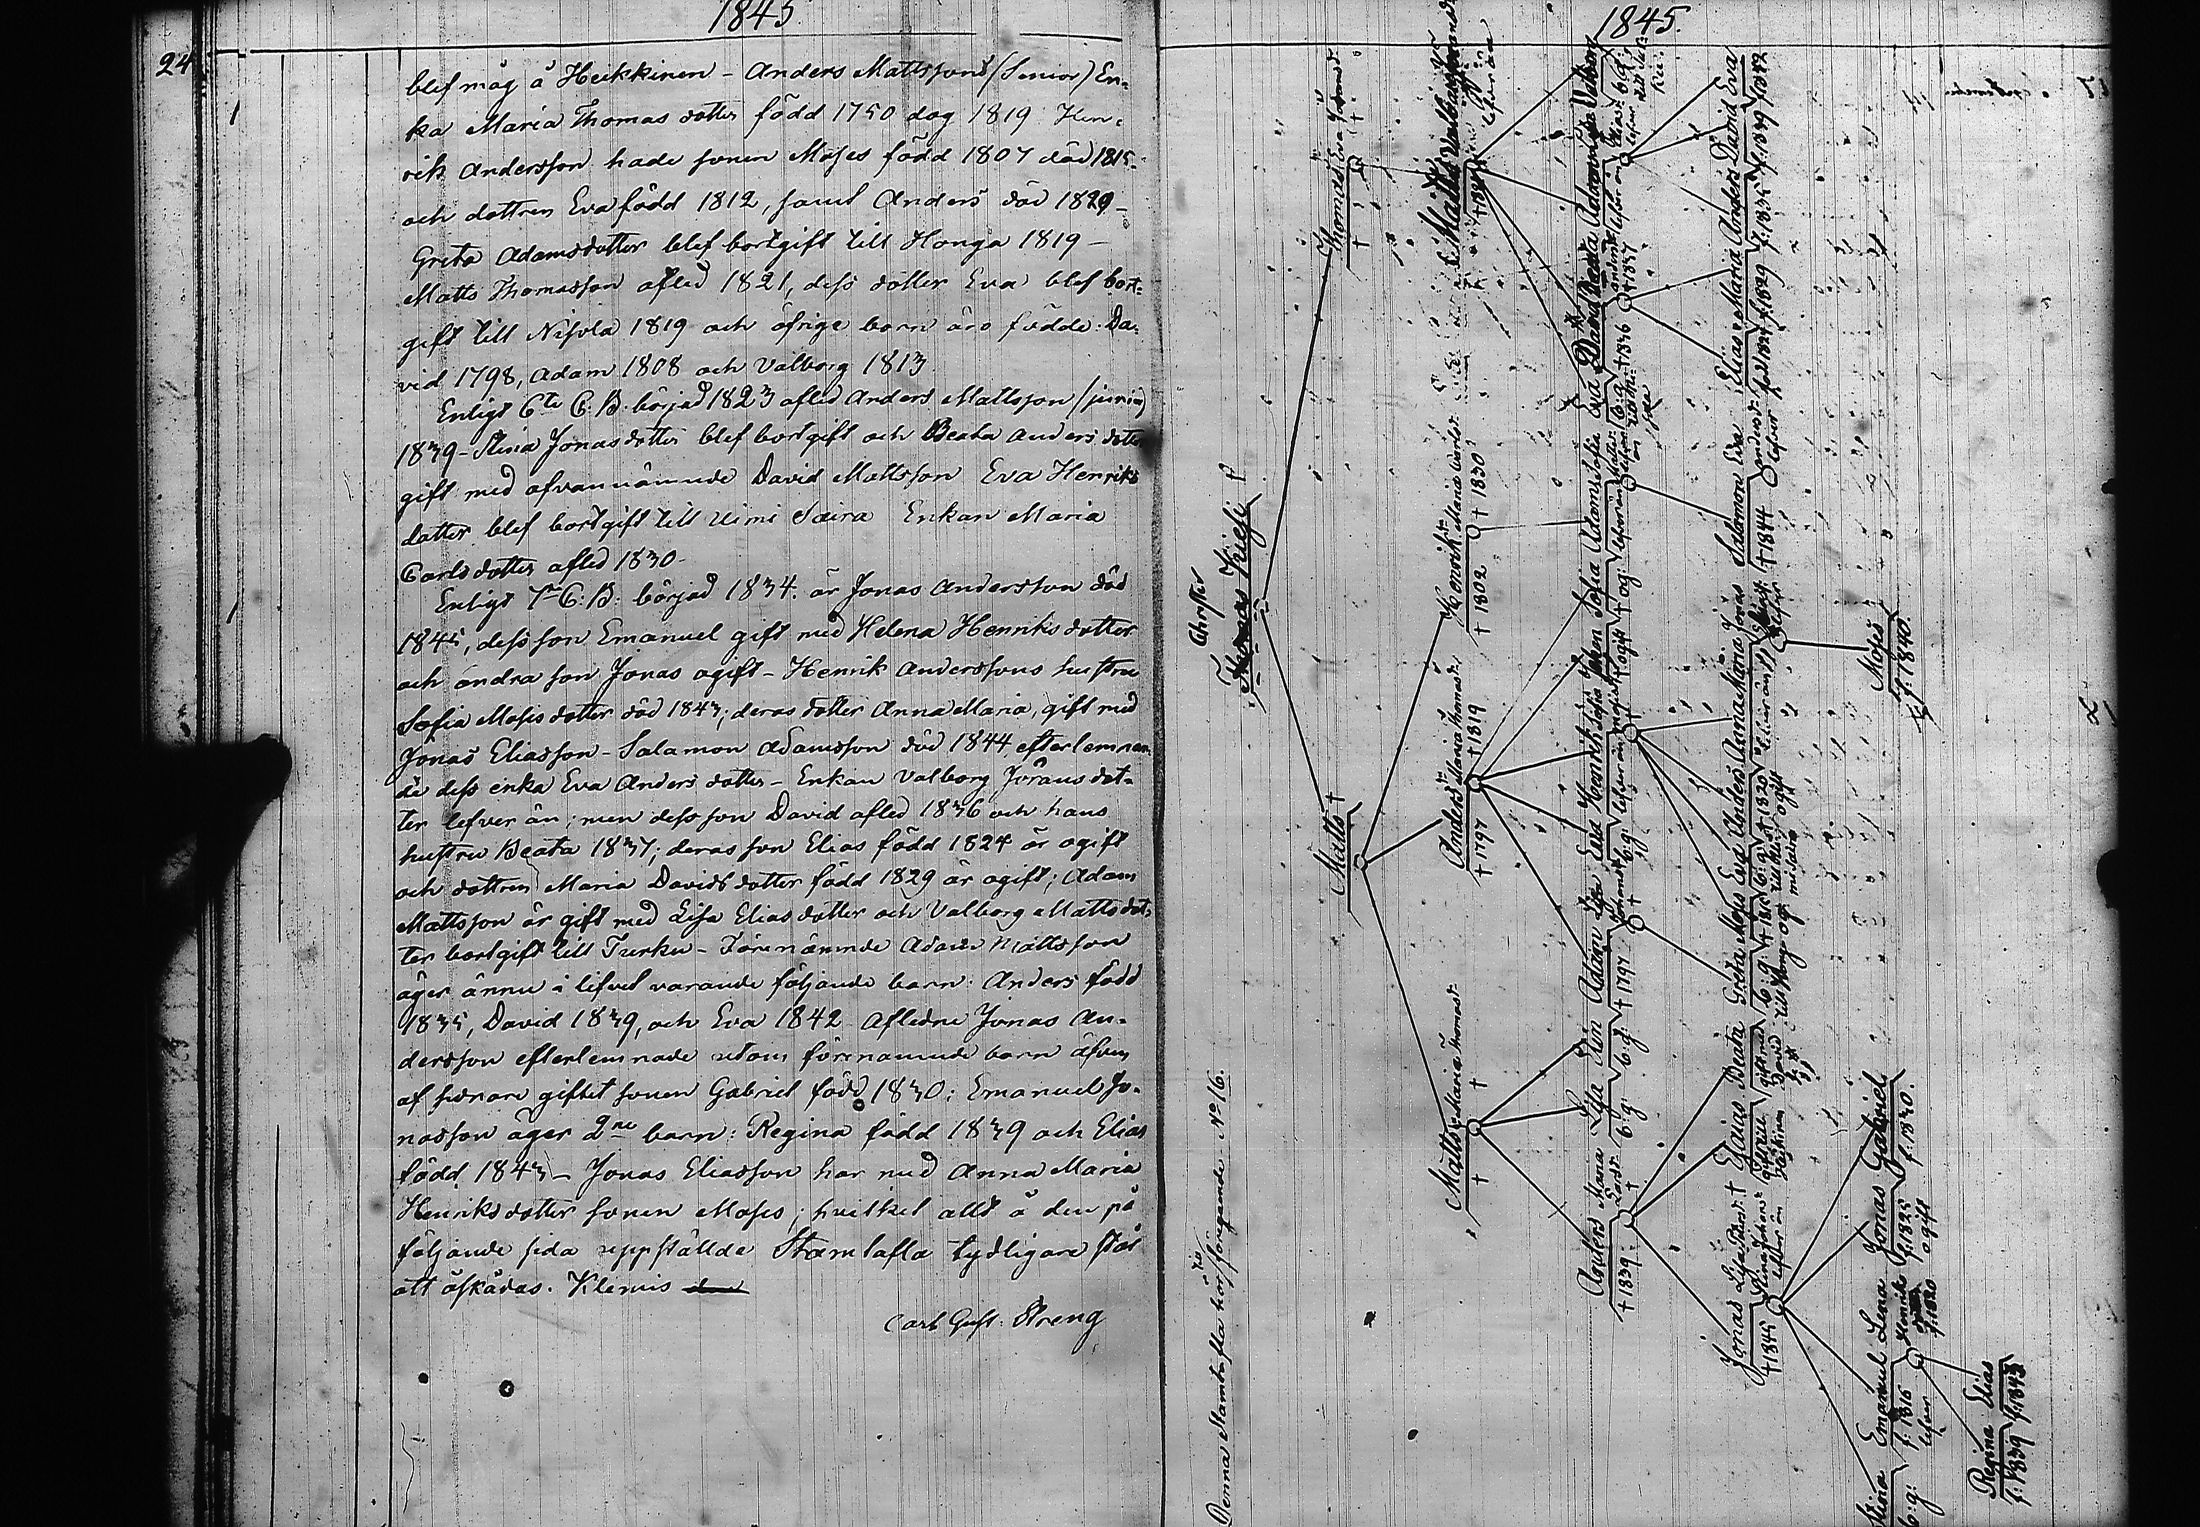 1845
24
blef måg å Heikkinen - Anders Mattssons (Senior) En-
ka Maria Thomas dotter född 1750 dog 1819 Hen-
rik Andersson hade sonen Moses född 1807 död 1815
och dottren Eva född 1812, samt Anders död 1829 -
Greta Adamsdotter blef bortgift till Honga 1819 -
Matts Thomasson afled 1821, dess dotter Eva blef bort-
gift till Nisula 1819 och öfrige barn äro födde: Da-
vid 1798, Adam 1808 och Valborg 1813
Enligt 6te C. B. börjad 1823 afled Anders Mattsson (junior)
1839 - Stina Jonasdotter blef bortgift och Beata Anders dotter
gift med ofvannämnde David Mattsson Eva Henriks
dotter blef bortgift till Uimi Saira Enkan Maria
Carlsdotter afled 1830 -
Enligt 7r C: B: börjad 1834. är Jonas Andersson död
1845, dess son Emanuel gift med Helena Henriks dotter
och andra son Jonas ogift - Henrik Anderssons hustru
Sofia Mosisdotter död 1843; deras dotter Anna Maria, gift med
Jonas Eliasson - Salamon Adamsson död 1844, efterlemnan-
de dess enka Eva Anders dotter - Enkan Valborg Jörans dot-
ter lefver än; men dess son David afled 1836 och hans
hustru Beata 1837; deras son Elias född 1824 är ogift
och dottren Maria Davids dotter född 1829 är ogift; Adam
Mattsson är gift med Lisa Elias dotter och Valborg Matts dot-
ter bortgift till Turku - Förenämnde Adam Mattsson
äger ännu i lifvet varande följande barn: Anders född
1835, David 1839, och Eva 1842 Aflidne Jonas An-
dersson efterlemnade utom förenämnde barn äfven
af senare giftet sonen Gabriel född 1830; Emanuel Jo-
nasson äger 2ne barn: Regina född 1839 och Elias
född 1843 - Jonas Eliasson har med Anna Maria
Henriksdotter sonen Moses; hvilket allt å den på
följande sida uppställde Stamtafla tydligare står
att åskådas. Klemis
Carl Gust. Streng
1845.
Denna Stamtafla hör till föregående No 16.
Christer
Thomas Kiesi †
Matts †
Thomas Eva
† †
Matts Maria Thomasd:
† †
Anders Maria Thomasd:
† 1797 † 1819
Henrik Maria Carlsd:
† 1802 † 1830
Matts Valborg
† 1821 lefver än
Anders Maria
† 1839 †
Lisa Elin
b:g: b:g
Adam Lisa
† 1797 †
Eva Henrik Sofia
b:g: lefver än
Sofia
Adam Sofia
lefver än
Eva David Beata Adam Lisa Valborg
b:g † 1836 † 1837 lefver än b:g:
Jonas Lisa †
† 1845 Stina lefver än
Elias Beata
gift med David
Greta Moses Eva Anders Anna Maria Jonas
b:g † 1815 b:g † 1829 lefver
Salomon Eva
† 1844 lefver
Elias Maria Anders David Eva
f. 1829 f. 1835 f. 1839 f. 1842
Stina Emanuel Lena Jonas Gabriel
b:g: f. 1816 Henriksd f. 1825 f. 1830.
lefver f. 1820 ogift
Moses
f. 1840.
Regina Elias
f. 1839 f. 1843